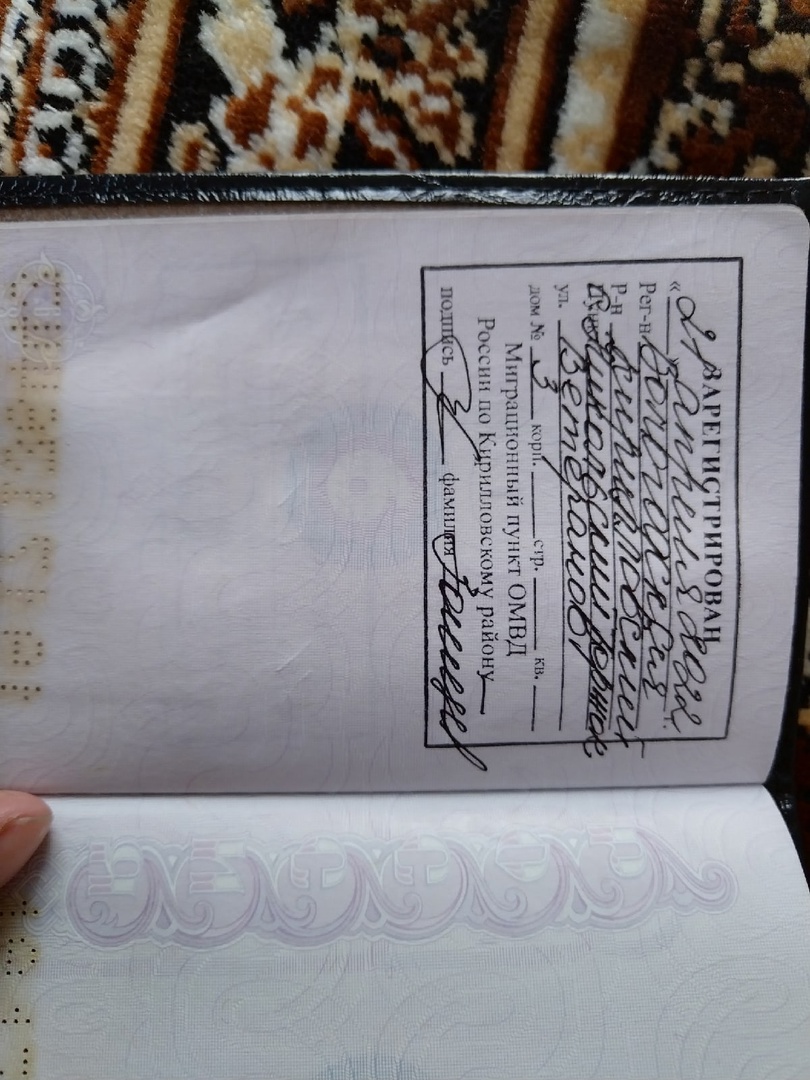 ЗАРЕГИСТРИРОВАН
« 21 » апреля 2022 г.
Рег-н Вологодская
Р-н Кирилловский
Пункт
ул. Ветеранов
дом № 3 корп. стр. кв.
Миграционный пункт ОМВД
России по Кирилловскому району
подпись фамилия